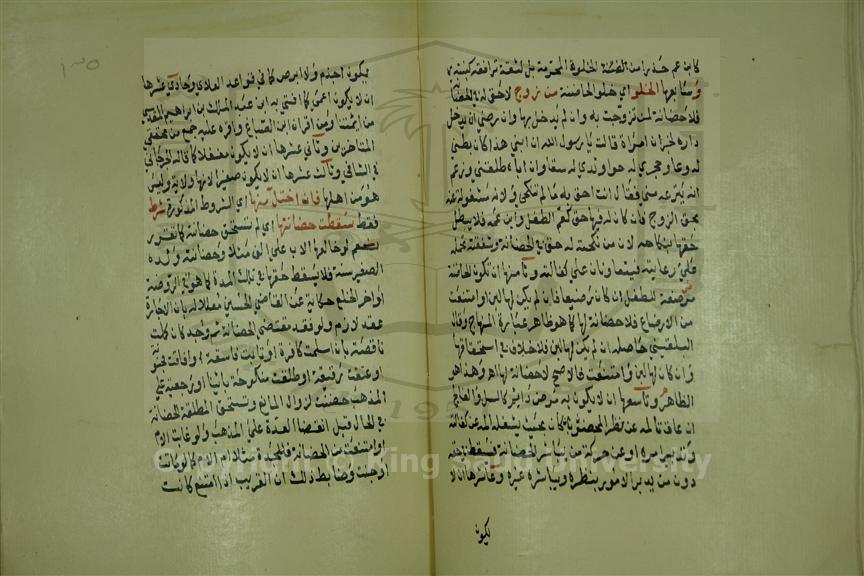 كابن عم حذرا من الخلوة المحرمة بل لثقة ترافقه كبنته
وسابعها الخلو اي خلو الحاضنة من زوج لا حق له في الحضانة
فلا حضانة لمن تزوجت به وان لم يدخل بها وان رضي ان يدخل
داره لخبر ان امراة قالت يا رسول الله ان ابني هذا كان بطني
له وعاء وحجري له حواء وثديي له سقاء وان اباه طلقني وزعم
انه ينزعه مني فقال انت احق به ما لم تنكحي ولانها مشغولة عنه
بحق الزوج فان كان له فيها حق كعم الطفل وابن عمه فلا يبطل
حقها بنكاحه لان من نكحته له حق في الحضانة وشفقته تحمله
على رعايته فيتعاونان على كفالته وثامنها ان تكون الحاضنة
مرضعة للطفل ان كان رضيعا فان لم يكن لها لبن او امتنعت
من الارضاع فلا حضانة لها كما هو ظاهر عبارة المنهاج وقال
البلقيني حاصله ان لم يكن لها لبن فلا خلاف في استحقاقها
وان كان لها لبن وامتنعت فالاصح لا حضانة لها اه وهذا هو
الظاهر وتاسعها ان لا يكون به مرض دائم كالسل والفالج
ان عاق تالمه عن نظر المحضون بان كان بحيث يشغله المه عن كفالته
وتدبير امره او عن حركة من يباشر الحضانة فتسقط في حقه
دون من يدبر الامور بنظره ويباشره غيره وعاشرها ان لا
يكون
يكون اجذم ولا ابرص كما في قواعد العلائي وحادي عشرها
ان لا يكون اعمى كما افتى به ابن عبد الملك بن ابراهيم المقدسي
من ايمتنا ومن اقران ابن الصباغ واقره عليه جمع من محققي
المتاخرين وثاني عشرها ان لا يكون مغفلا كما قاله الجرجاني
في الشافي وثالث عشرها ان لا يكون صغيرا لانها ولاية وليس
هو من اهلها فان اختل منها اي الشروط المذكورة شرط
فقط سقطت حضانتها اي لم تستحق حضانة كما تقرر
نعم لو خالعها الاب على الف مثلا وحضانة ولده
الصغير سنة فلا يسقط حقها في تلك المدة كما هو في الروضة
اواخر الخلع حكاية عن القاضي الحسين معللا له بان الاجارة
عقد لازم ولو فقد مقتضى الحضانة ثم وجد كان كملت
ناقصة بان اسلمت كافرة او تابت فاسقة او افاقت مجنونة
او عتقت رقيقة او طلقت منكوحة باينا او رجعية على
المذهب حضنت لزوال المانع وتستحق المطلقة الحضانة
في الحال قبل انقضا العدة على المذهب ولو غابت الام
او امتنعت من الحضانة فللجدة مثلا ام الام كما لو ماتت
او جنت وضابط ذلك ان القريب اذا امتنع كانت